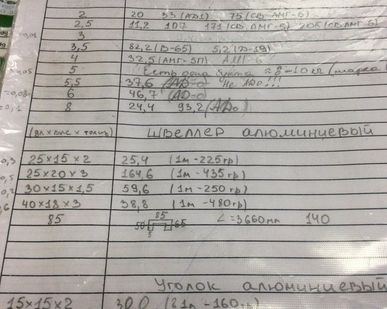 2 20 33 75 (св. АМГ-6)
2,5 11,2 107 171 (св. АМГ-5) 208 (св. АМГ-5)
3
3,5 82,2 (D-65) 5,2 (D-19)
4 37,5 (АМГ-5П) АМГ
5 Есть одна ≈ 8-10 кг
5,5 37,6 (АД-0) не
6 46,7 (АД-0)
8 24,4 93,2 (АД0)
Швеллер алюминиевый
0,3 25×15×2 25,4 (1м-225гр)
25×20×3 164,6 (1м-435гр)
30×15×1,5 59,6 (1м-250гр)
40×18×3 38,8 (1м-480гр)
85 50 85 65 5 L=3660мм 140
Уголок алюминиевый
15×15×2 300 (1м-160гр)